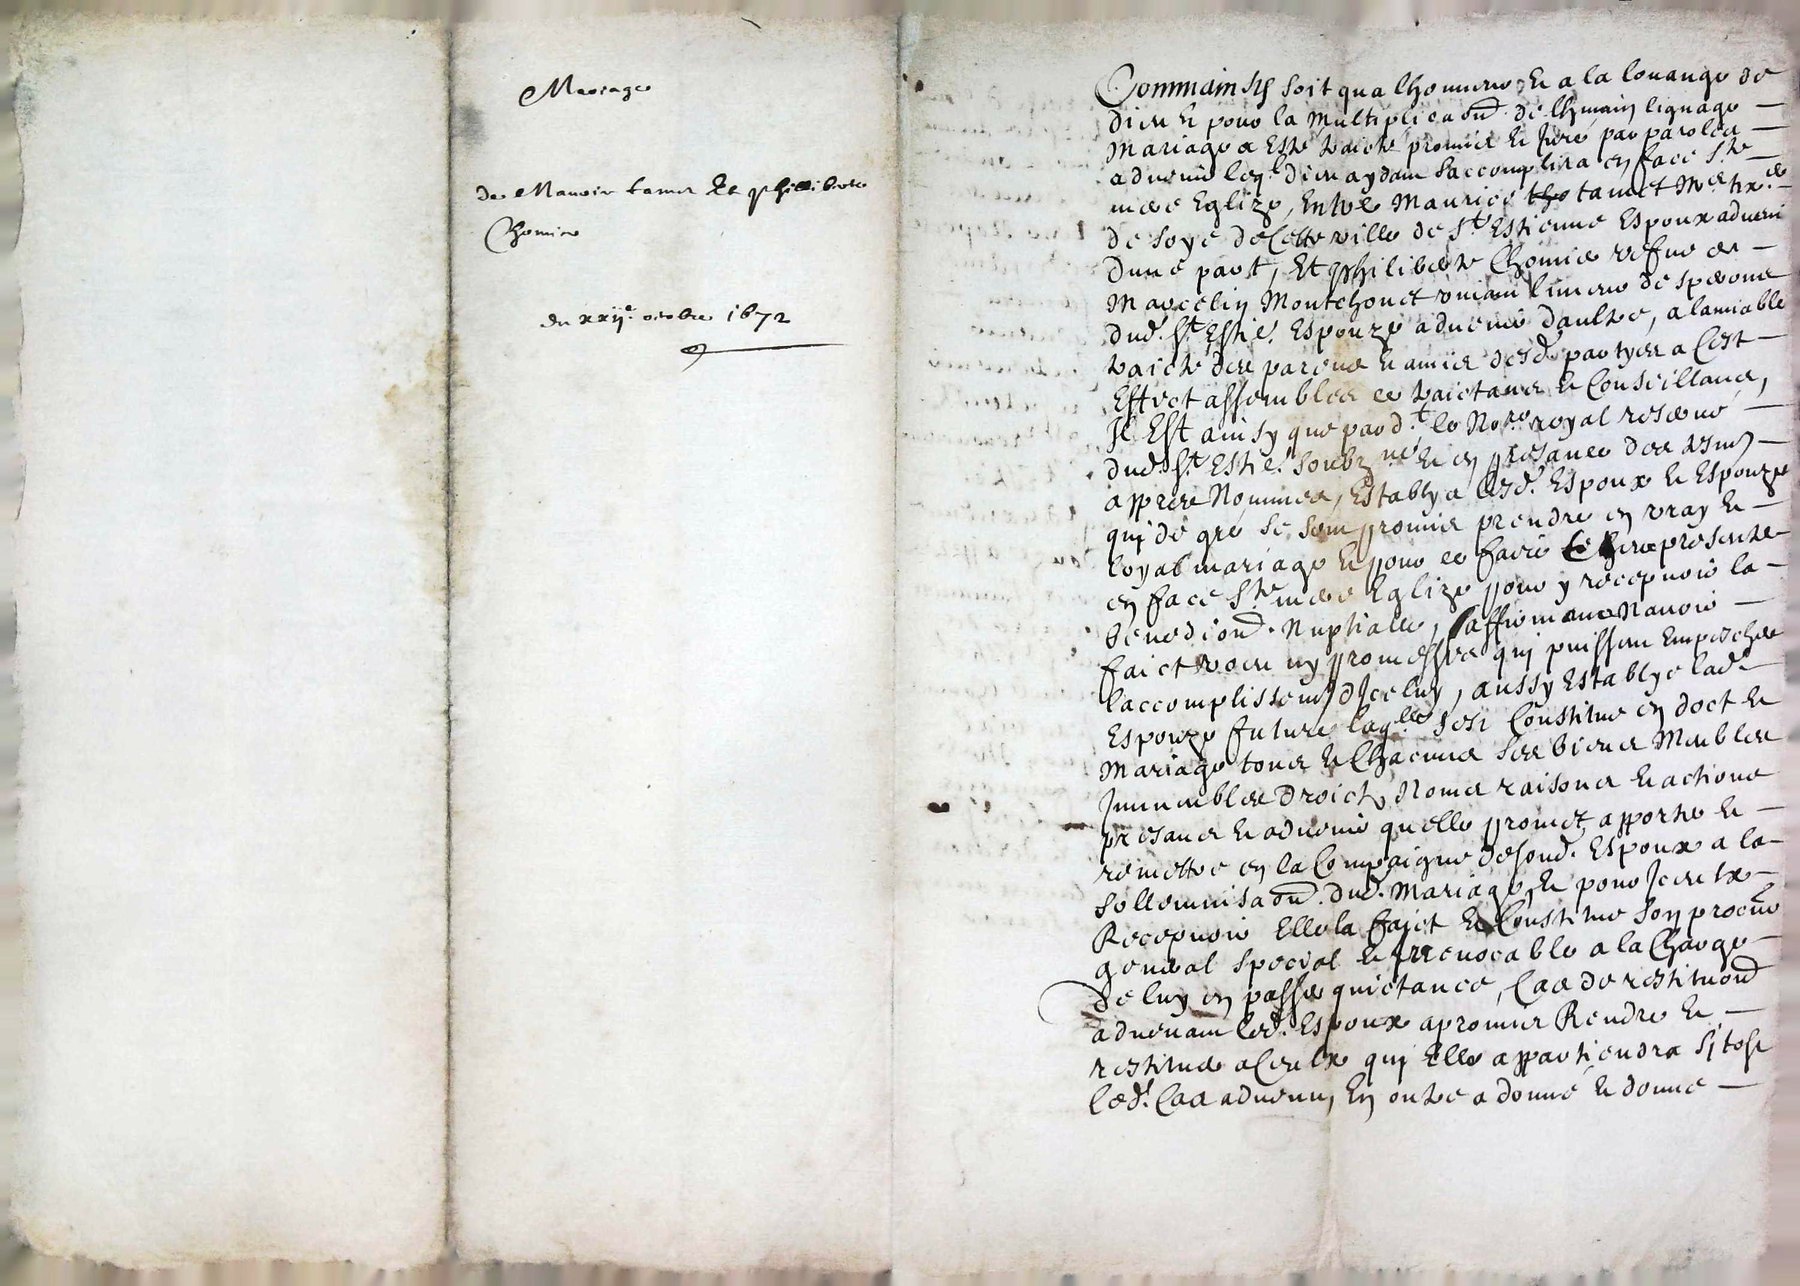 Mariage
de Maurice tamet Et philiberte
Chomier
du xxije octobre 1672
Comme ainsy soit qua lhonneur Et a la louange de
dieu Et pour la multiplicaon de lhumain lignage
Mariage a Este traicte promis Et Jure par parolles
advenir leql dieu aydant saccomplira en face Ste
mere Eglize, Entre Maurice tamet Me tixr
de soye de Cette ville de St Estienne Espoux advenir
dune part, Et philiberte Chomier vefve de
Marcelin Montchouet vivant limeur de Esperons
dud. St Estie. Espouze advenir daultre, a lamiable
traicte des parens Et amis desd. partyes a Cest
Effect assembles ce traictans Et Conseillans,
Il Est ainsy que pard.t le Nore royal reserve
dud. St Estie. soubzne Et en presance des tesmz
appres Nommes, Establys lesd. Espoux Et Espouze
quy de gre se sont promis prendre en vray Et
loyal mariage Et pour ce faire se presenter
en face Ste mere Eglize pour y recepvoir la
benediond. Nuptialle, affirmans Navoir
faict voeu ny promesses quy puissent Empescher
laccomplissemt dIceluy, aussy Establye lad.
Espouze future laqlle sest Constitue en doct Et
Mariage tous Et Chacuns ses biens Meubles
Immeubles droicts Noms raisons Et actions
presans Et advenir quelle promet apporter Et
remettre en la Compaigne de sond. Espoux a la
sollemnisaon. dud. Mariage, Et pour Iceulx
Recepvoir Elle la faict Et Constitue son procur
general special Et Irrevocable a la Charge
de luy en passer quictance, Cas de restituon
advenant led. Espoux a promis Rendre Et
restituer a Ceulx quy Elle appartiendra sitost
led. Cas advenu, En oultre a donne Et donne